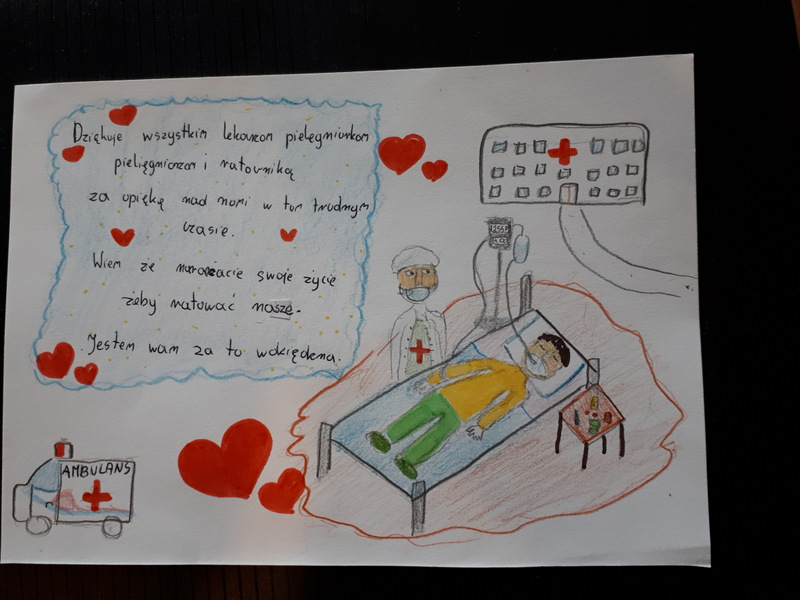 Dziękuje wszystkim lekarzom pielęgniarkom
pielięgniarzom i ratowniką
za opiękę nad nami w tym trudnym
czasie.
Wiem że narażacie swoje życie
żeby ratować nasze.
Jestem wam za to wdzięczna.
AMBULANS